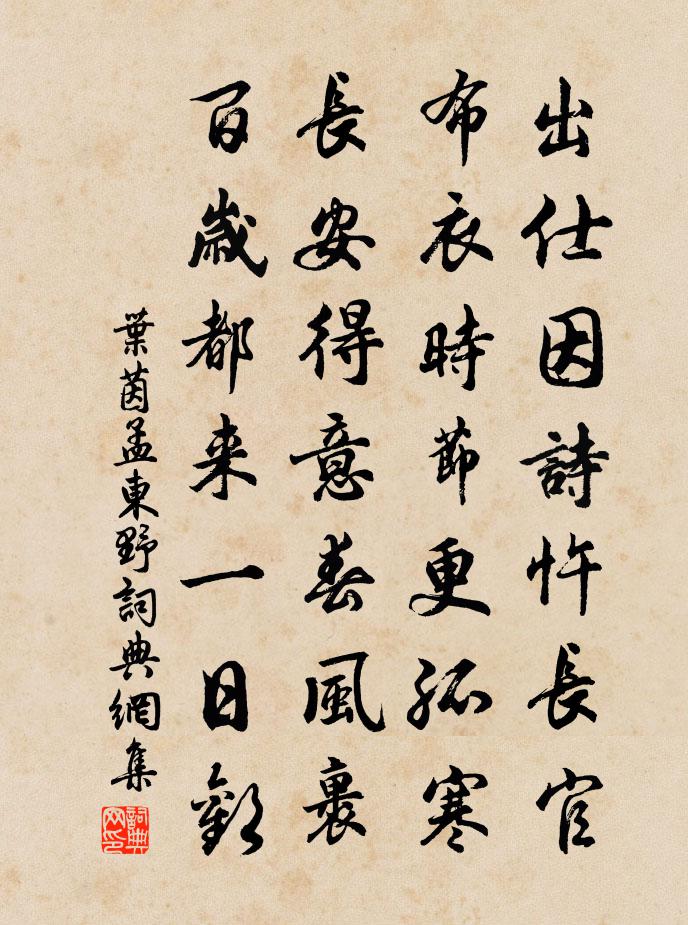 出仕因詩忤長官
布衣時節更孤寒
長安得意春風裏
百歲都来一日歡
葉茵孟東野詞典網集
詞典网印